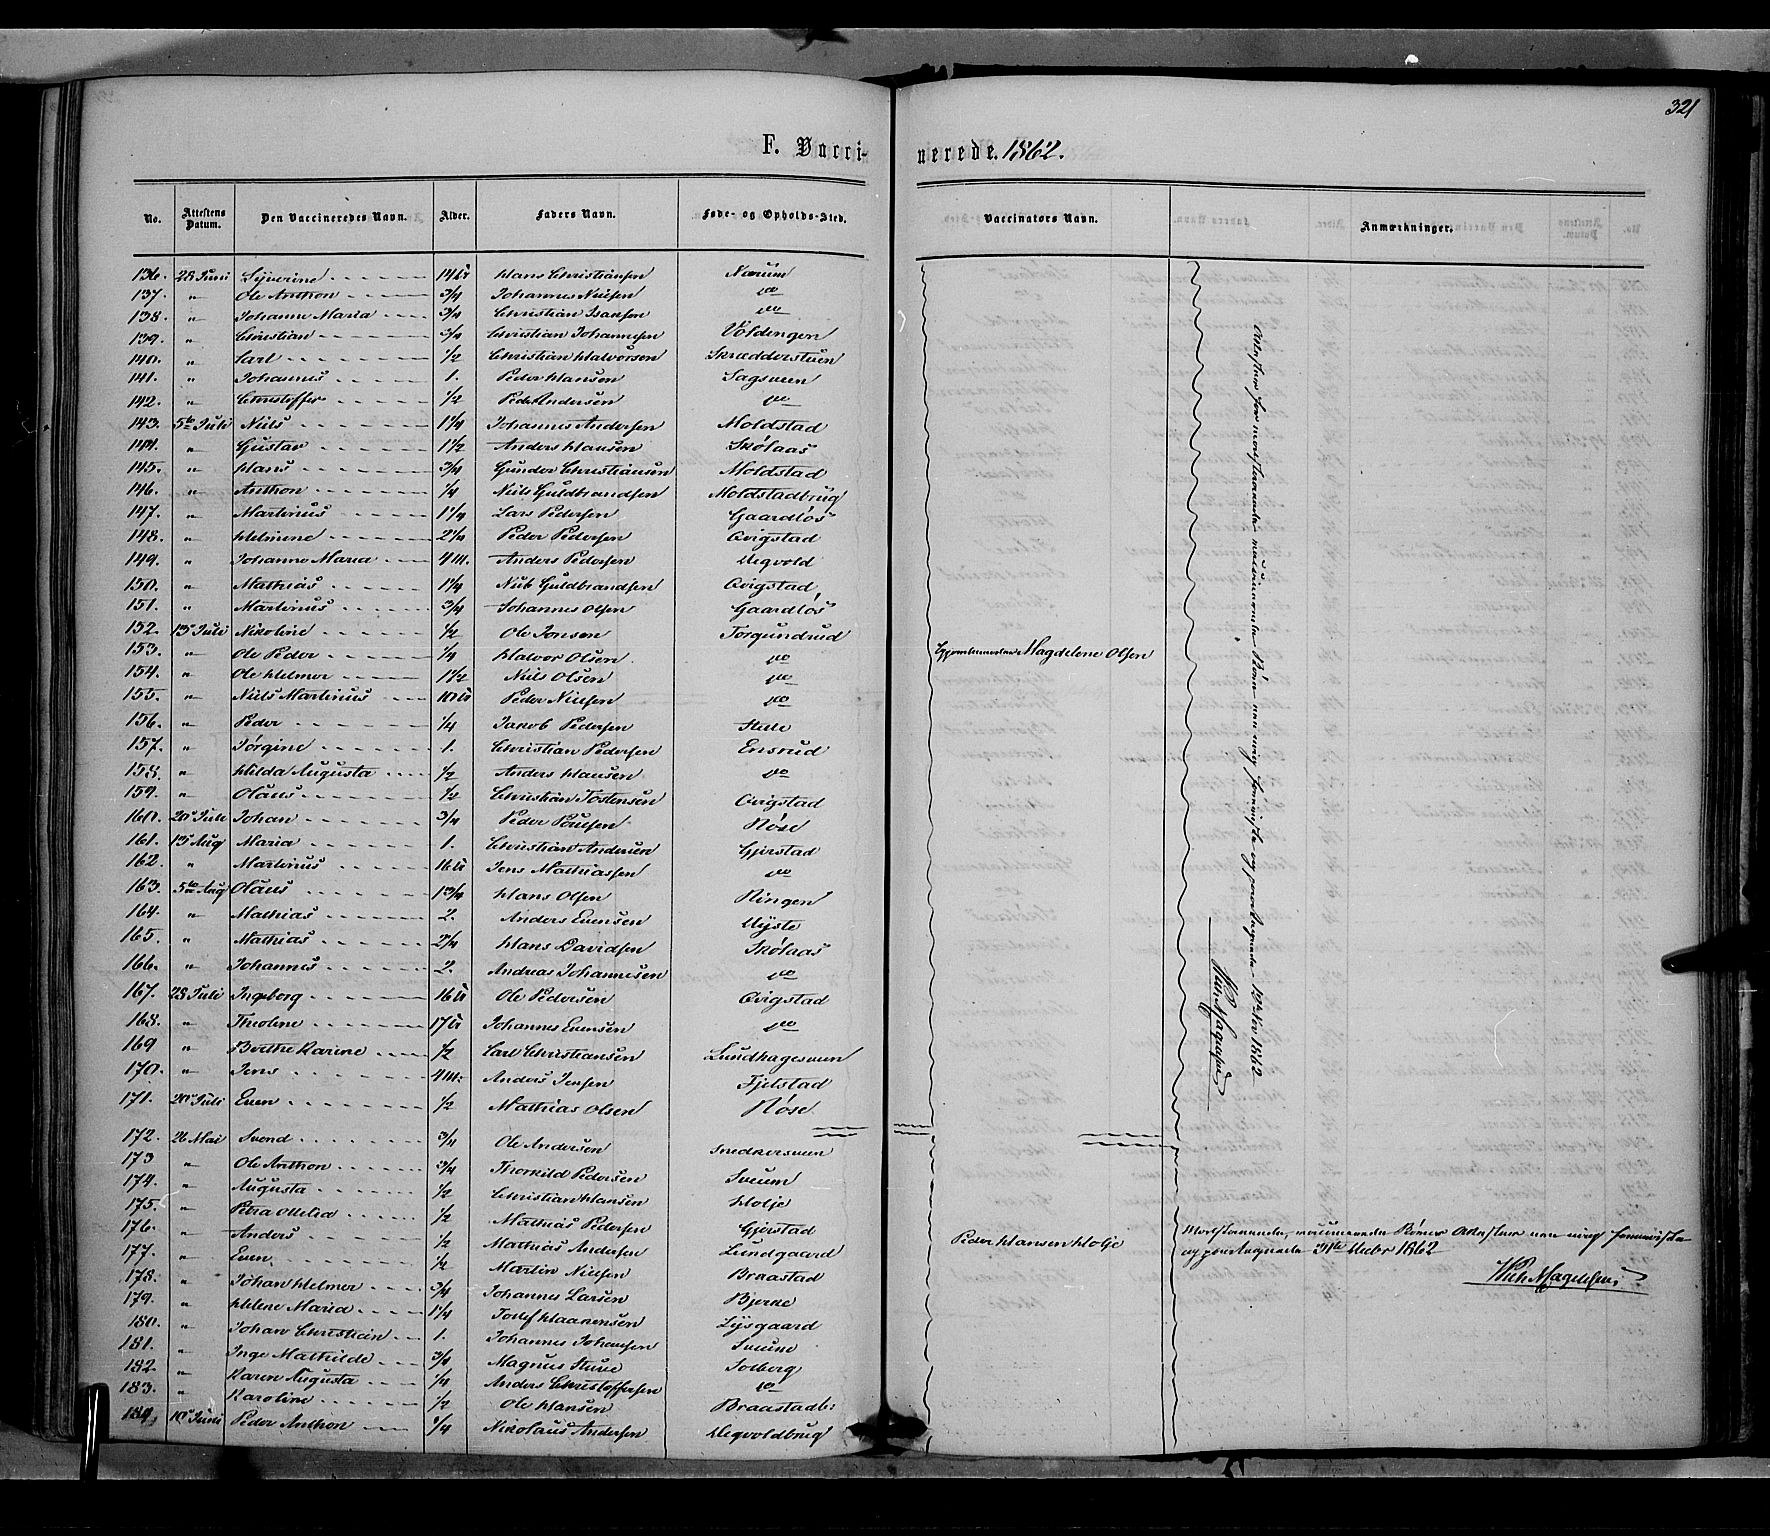 321
F. Vacci- nerede. 1862.
No. Attestens Datum. Den Vaccineredes Navn. Alder. Faders Navn. Føde- og Opholds-Sted. Vaccinators Navn. Anmærkninger.
136. 28 Juni Syverine 14 Hans Christiansen Nærum
137. " Ole Anthon 3/4 Johannes Nielsen do
138. " Johanne Maria 3/4 Christian Isaksen do
139. " Christian 3/4 Christian Johannesen Voldengen
140. " Carl 1/2 Christian Halvorsen Skrædderstuen
141. " Johannes 1. Peder Hansen Sagsveen
142. " Christoffer 1/2 Peder Andersen do
143. 5te Juli Niels 1 1/4 Johannes Andersen Moldstad
144. " Gustav 1 1/2 Anders Hansen Skølaas
145. " Hans 3/4 Gunder Christiansen Moldstad
146. " Anthon 1/4 Niels Guldbrandsen Moldstadbrug
147. " Martinus 1 1/4 Lars Pedersen Gaardløs
148. " Helmine 2 1/4 Peder Pedersen Qvigstad
149. " Johanne Maria 4 m. Anders Pedersen
150. " Mathias 1 1/4 Niels Guldbrandsen Qvigstad
151. " Martinus 3/4 Johannes Olsen Gaardløs
152. 13 Juli Nikoline 1/2 Ole Jonsen Torgundrud
153. " Ole Peder 1/4 Halvor Olsen do Magdelene Olsen
154. " Ole Helmer 1 1/2 Niels Olsen do
155. " Niels Martinus Peder Nielsen do
156. " Peder 1/4 Jakob Pedersen
157. " Jørgine 1. Christian Pedersen Ensrud
158. " Hilda Augusta 1/2 Anders Hansen do
159. " Olaus 1/2 Christian Tostensen Qvigstad
160. 20 Juli Johan 3/4 Peder Poulsen Røse
161. 13 Aug Maria 1. Christian Andersen Gjerstad
162. " Martinus 16 Jens Mathiassen do
163. 5te Aug Olaus 1 3/4 Hans Olsen Ringen
164. " Mathias 2. Anders Evensen
165. " Mathias 2/4 Hans Davidsen Skølaas
166. " Johannes 2. Andreas Johannesen do
167. 28 Juli Ingeborg 16 Ole Pedersen Qvigstad
168. " Theoline 17 Johannes Evensen do
169 " Berthe Karine 1/2 Carl Christiansen Lundhagesveen
170. " Jens 4 m. Anders Jensen Fjelstad
171. 20 Juli Even 1/2 Mathias Olsen Røse
172. 26 Mai Svend 3/4 Ole Andersen Snedkersveen
173 " Ole Anthon 3/4 Thorkild Pedersen Sveum
174. " Augusta 1/2 Christian Hansen Holje
175. " Petra Ottilia 1/2 Mathias Pedersen Gjerstad
176. " Anders 1/2 Mathias Andersen Lundgaard Peder Hansen Holje
177. " Even 1/2 Martin Nielsen Braastad
178. " Johan Helmer 3/4 Johannes Larsen Bjerke
179. " Helene Maria 1 1/4 Josef Haagensen Lysgaard
180. " Johan Christian 1. Johannes Johansen Sveum
181. " Inge Mathilde 3/4 Magnus Solberg
182 " Karen Augusta 1/4 Anders Christoffersen do
183. " Karoline 1/2 Ole Hansen Braastadb:
184. 10 Juni Peder Anthon 1/4 Nikolaus Andersen
Attester for vaccinerede Børn 12te Nov 1862
vaccinerede Børns Attester
1862